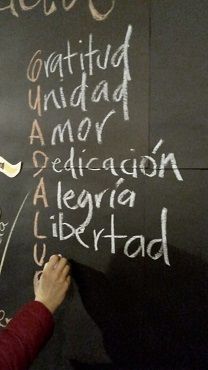 Gratitud
Unidad
Amor
Dedicación
Alegría
Libertad
U